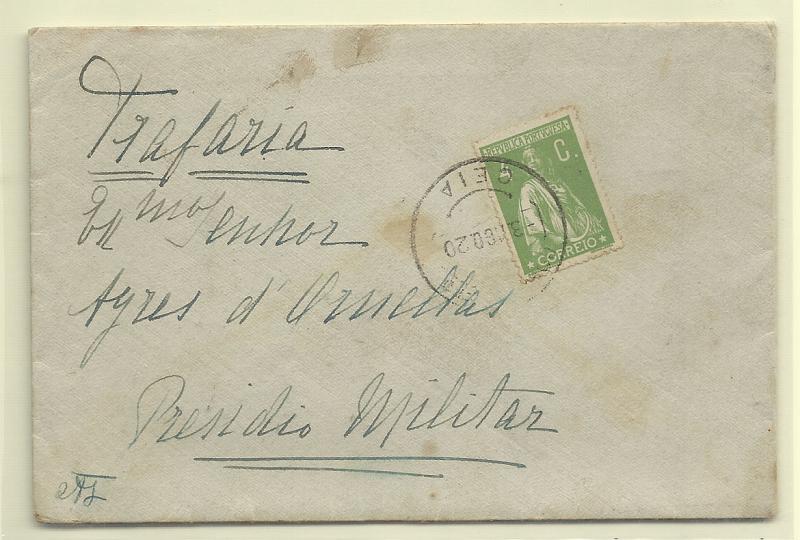 Trafaria
Exmo Senhor
Ayres d'Ornellas
Presidio Militar
REPUBLICA PORTUGUESA
C.
CORREIO
CEIA
AGO.20